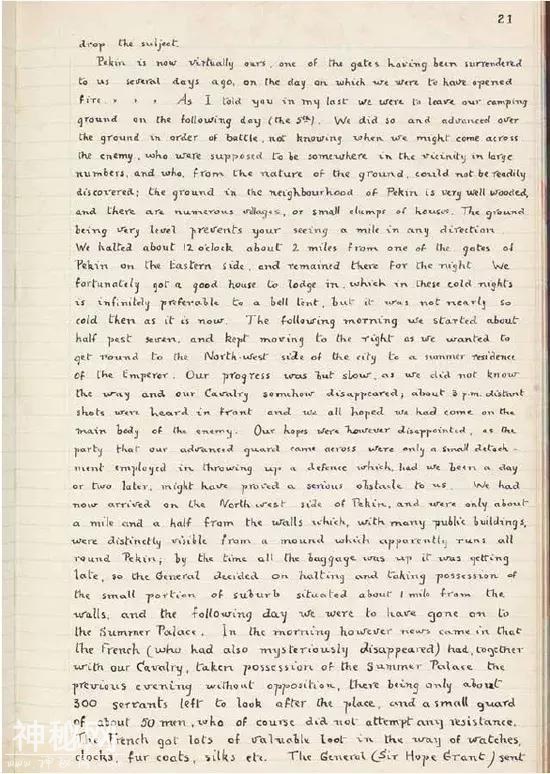 21
drop the subject.
Pekin is now virtually ours, one of the gates having been surrendered
to us several days ago, on the day on which we were to have opened
fire. , , , As I told you in my last we were to leave our camping
ground on the following day (the 5th). We did so and advanced over
the ground in order of battle, not knowing when we might come across
the enemy, who were supposed to be somewhere in the vicinity in large
numbers, and who, from the nature of the ground, could not be readily
discovered; the ground in the neighbourhood of Pekin is very well wooded,
and there are numerous villages, or small clumps of houses. The ground
being very level prevents your seeing a mile in any direction.
We halted about 12 o'clock about 2 miles from one of the gates of
Pekin on the Eastern side, and remained there for the night We
fortunately got a good house to lodge in, which in these cold nights
is infinitely preferable to a bell tent, but it was not nearly so
cold then as it is now. The following morning we started about
half past seven, and kept moving to the right as we wanted to
get round to the North-west side of the city to a summer residence
of the Emperor. Our progress was but slow, as we did not know
the way and our Cavalry somehow disappeared; about 3 p.m. distant
shots were heard in front and we all hoped we had come on the
main body of the enemy. Our hopes were however disappointed, as the
party that our advanced guard came across were only a small detach-
ment employed in throwing up a defence which, had we been a day
or two later, might have proved a serious obstacle to us. We had
now arrived on the North west side of Pekin, and were only about
a mile and a half from the walls which, with many public buildings,
were distinctly visible from a mound which apparently runs all
round Pekin; by the time all the baggage was up it was getting
late, so the General decided on halting and taking possession of
the small portion of suburb situated about 1 mile from the
walls, and the following day we were to have gone on to
the Summer Palace. In the morning however news came in that
the French (who had also mysteriously disappeared) had, together
with our Cavalry, taken possession of the Summer Palace the
previous evening without opposition, there being only about
300 servants left to look after the place, and a small guard
of about 50 men, who of course did not attempt any resistance.
The French got lots of valuable loot in the way of watches,
clocks, fur coats, silks etc. The General (Sir Hope Grant) sent
神秘网